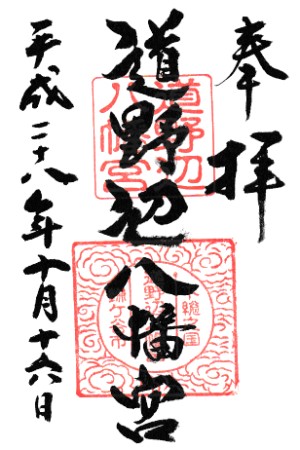 奉拝
道野辺八幡宮
平成二十八年十月十六日
道野辺八幡宮